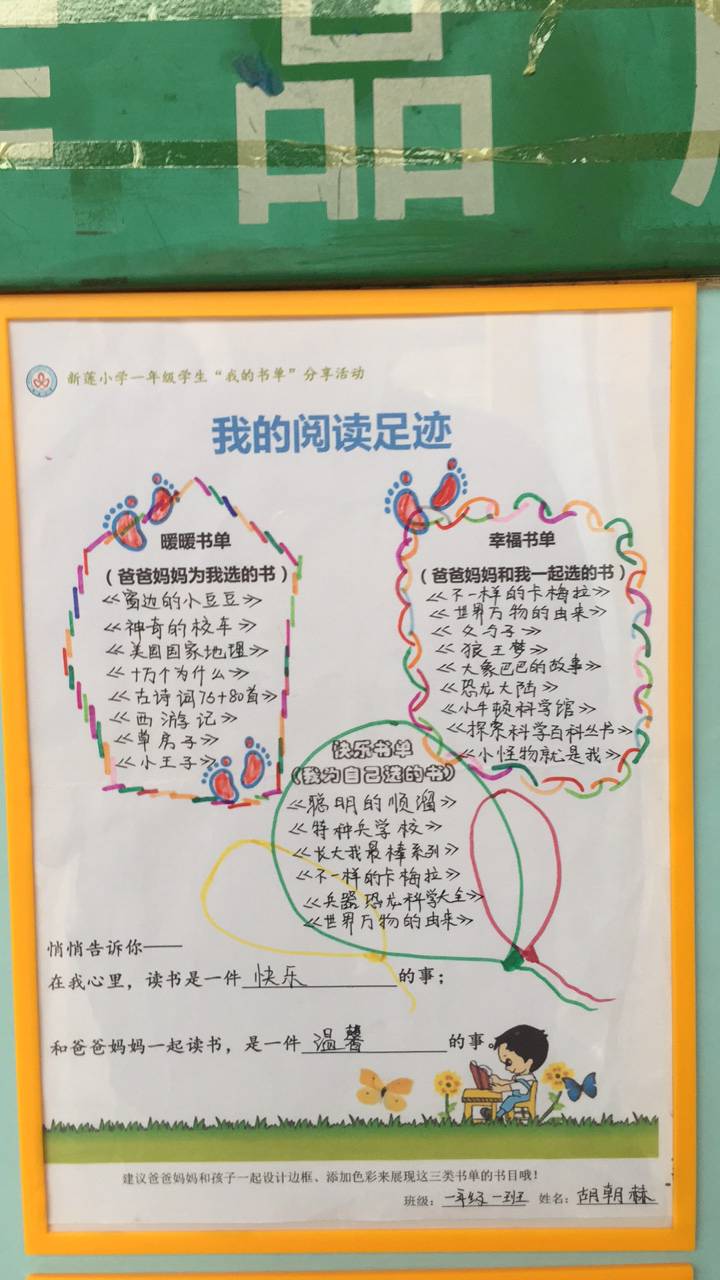 品
新莲小学一年级学生“我的书单”分享活动
我的阅读足迹
暖暖书单
（爸爸妈妈为我选的书）
《窗边的小豆豆》
《神奇的校车》
《美国国家地理》
《十万个为什么》
《古诗词75+80首》
《西游记》
《草房子》
《小王子》
幸福书单
（爸爸妈妈和我一起选的书）
《不一样的卡梅拉》
《世界万物的由来》
《父与子》
《狼王梦》
《大象巴巴的故事》
《恐龙大陆》
《小牛顿科学馆》
《探索科学百科丛书》
《小怪物就是我》
快乐书单
（我为自己选的书）
《聪明的顺溜》
《特种兵学校》
《长大我最棒系列》
《不一样的卡梅拉》
《兵器恐龙科学大全》
《世界万物的由来》
悄悄告诉你——
在我心里，读书是一件快乐的事；
和爸爸妈妈一起读书，是一件温馨的事。
建议爸爸妈妈和孩子一起设计边框、添加色彩来展现这三类书单的书目哦！
班级：一年级一班 姓名：胡朝赫